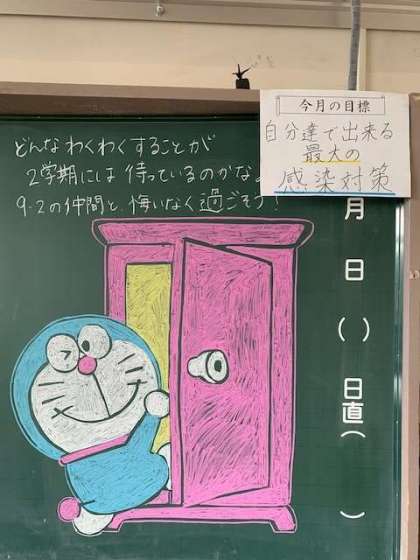 どんなわくわくすることが
2学期には待っているのかな
9-2の仲間と、悔いなく過ごそう!
今月の目標
自分達で出来る
最大の
感染対策
月
日
( )
日直
( )